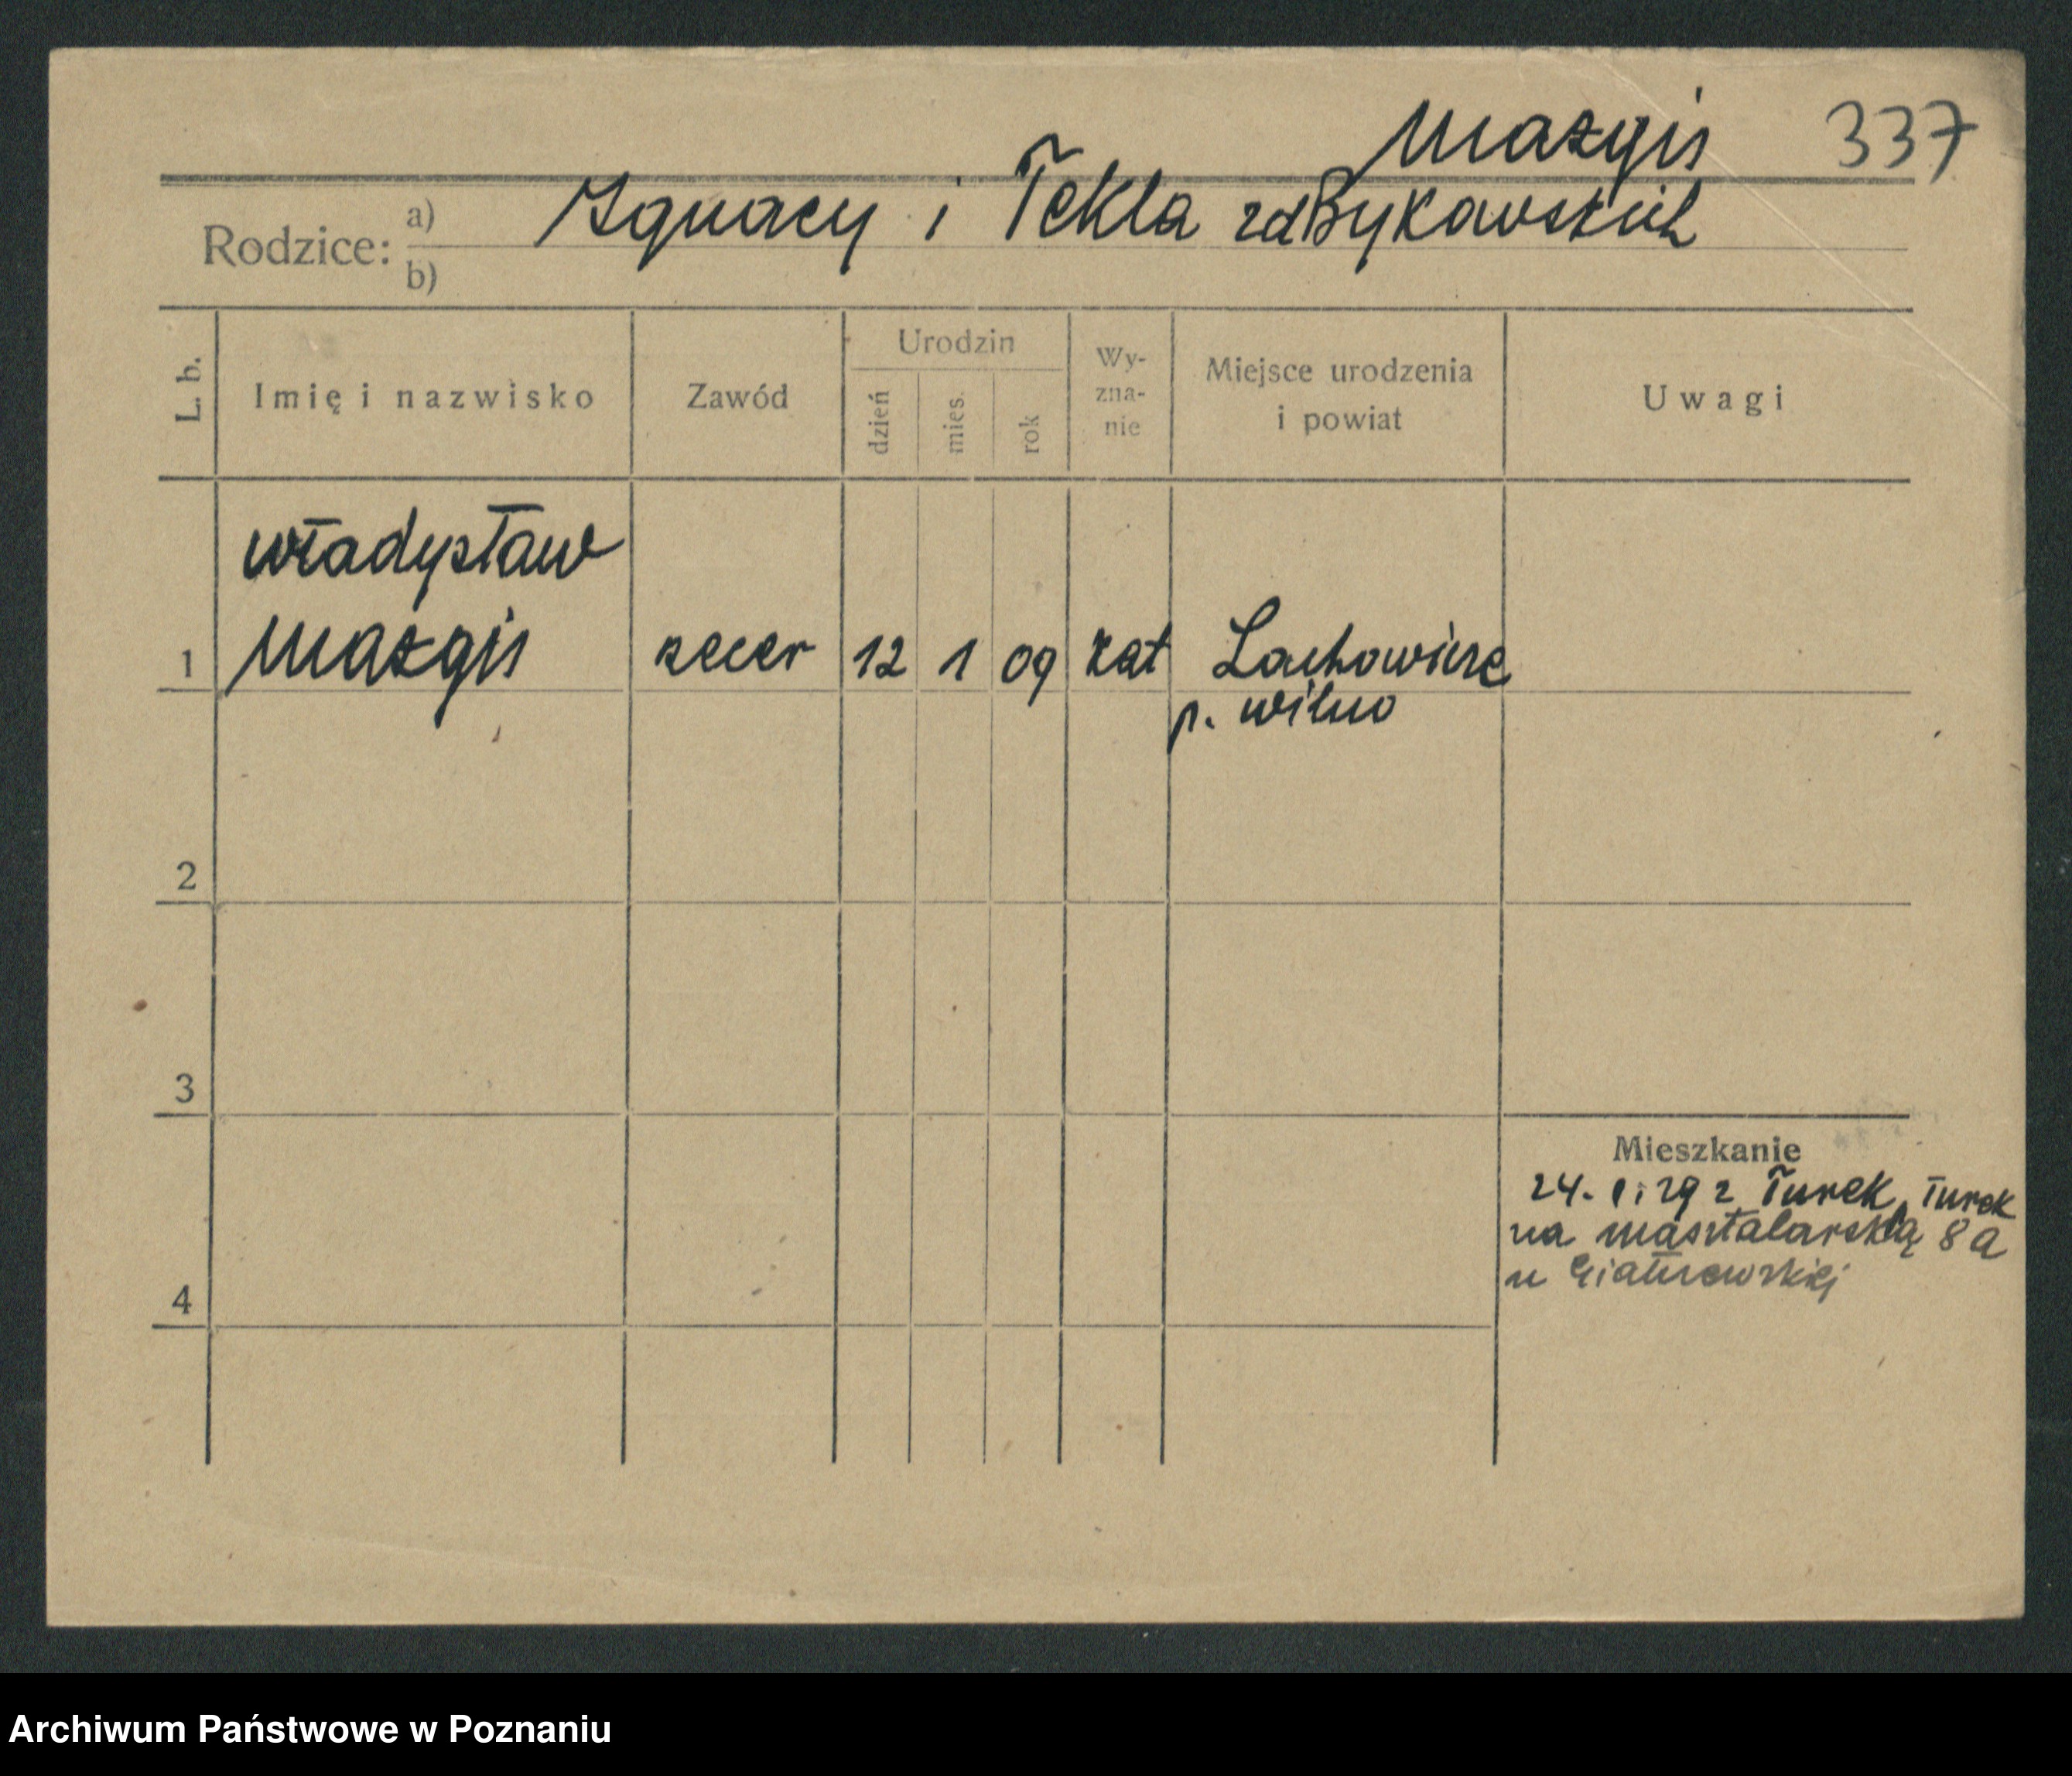 Mazgis 337
Rodzice: a) Ignacy i Tekla zd Bykowskich
b)
L. b.
Imię i nazwisko
Zawód
Urodzin
dzień
mies.
rok
Wy-
zna-
nie
Miejsce urodzenia
i powiat
Uwagi
Władysław
1 Mazgis zecer 12 1 09 kat Lachowicze
p. Wilno
2
3
4
Mieszkanie
24. 1. 29 z Turek, Turek
na Masztalarską 8a
u
Archiwum Państwowe w Poznaniu